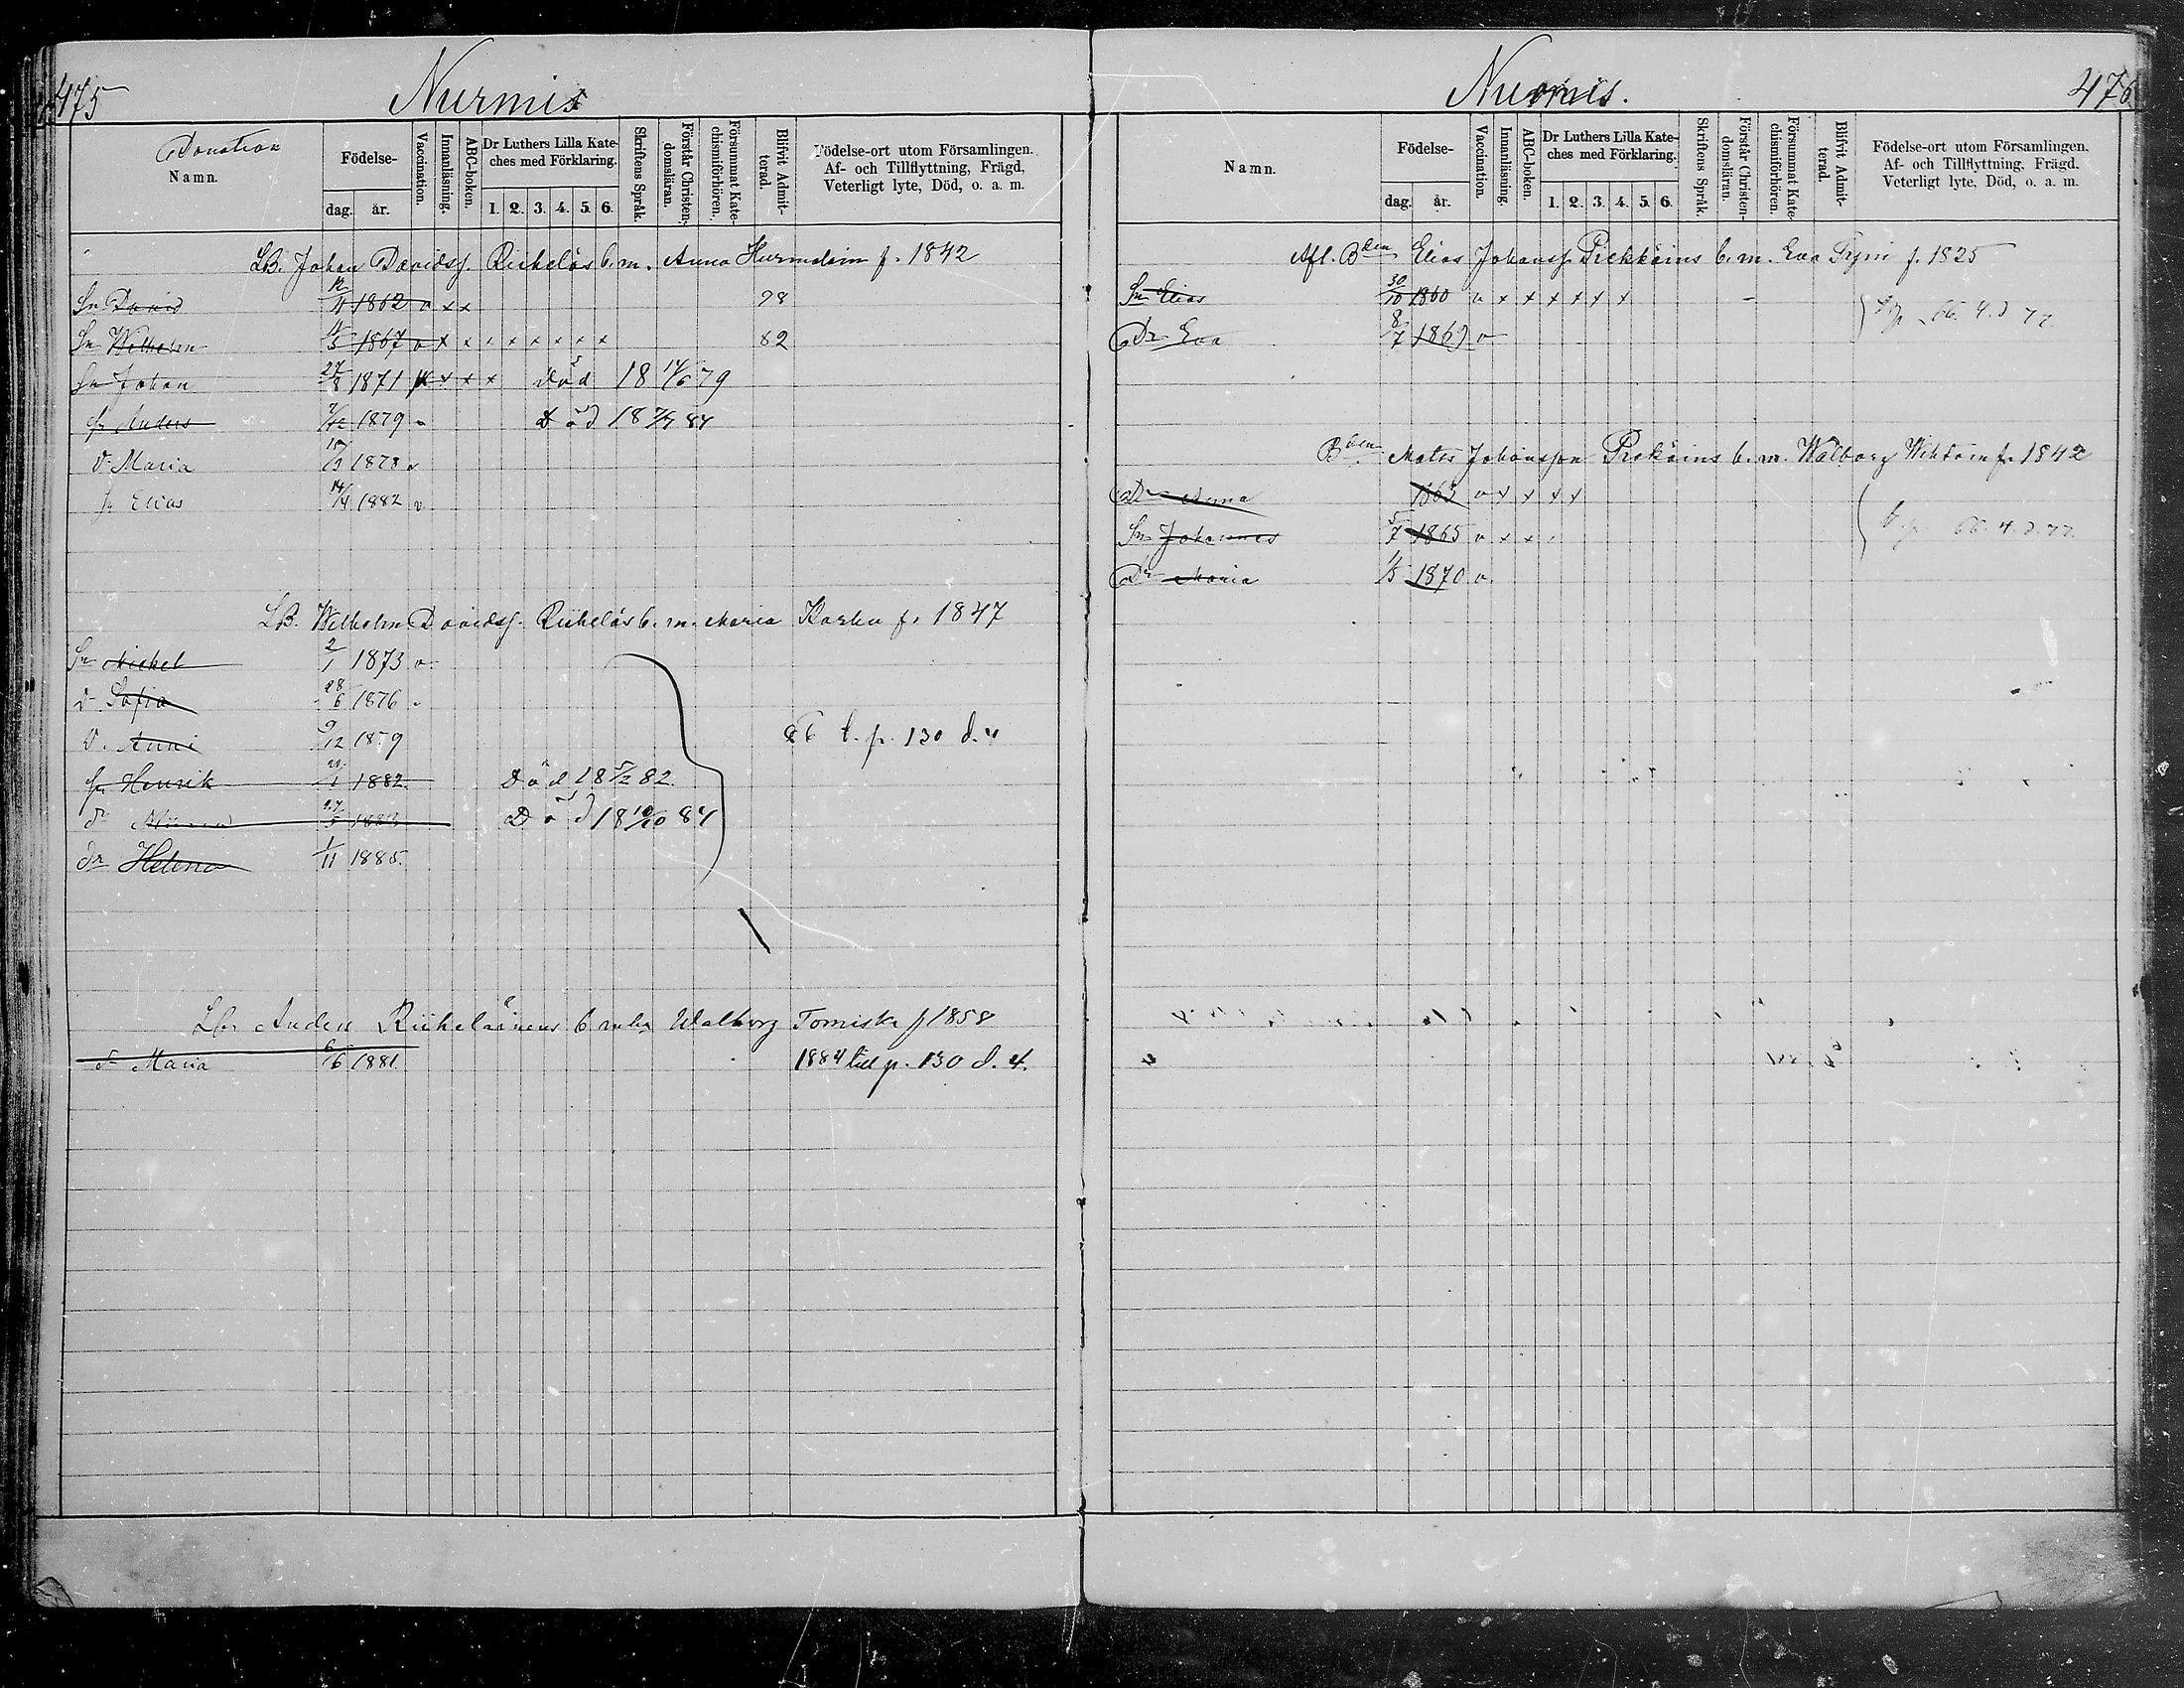 475
Nurmis
Donation
Namn.
Födelse-
dag. år.
Vaccination.
Innanläsning.
ABC-boken.
Dr Luthers Lilla Kate-
ches med Förklaring.
1. 2. 3. 4. 5. 6.
Skriftens Språk.
Förstår Christen-
domsläran.
Försummat Kate-
chismiförhören.
Blifvit Admit-
terad.
Födelse-ort utom Församlingen.
Af- och Tillflyttning, Frägd,
Veterligt lyte, Död, o. a. m.
LB. Johan Davidsf. Riikeläs b. m. Anna Hurmelain f. 1842
Sn David 12/11 1862 v x x
Sn Wilhelm 1867 v x x x x x x x x 82
Sn Johan 27/8 1871 x x x död 18 14/6 79
fr Anders 1879 Död 18 84
d. Maria 1878 v
fr Elias 14/4 1882 v
LB. Wilhelm Davidsf. Riikeläs b. m. Maria Karhu f. 1847
Sn Mickel 2/1 1873 v
d. Sofia 28/6 1876
d. Anni 9/12 1879 86 t. p. 130 d. 4
fr Henrik 1882 Död 18 5/2 82.
Död 18 10/10 84
dr Helena 1/11 1885.
Lbr Anders Riikeläinens b m hu Walborg Tomiska f 1858
dr Maria 6/6 1881. 1884 till p. 130 d. 4.
Nurmis.
476
Namn.
Födelse-
dag. år.
Vaccination.
Innanläsning.
ABC-boken.
Dr Luthers Lilla Kate-
ches med Förklaring.
1. 2. 3. 4. 5. 6.
Skriftens Språk.
Förstår Christen-
domsläran.
Försummat Kate-
chismiförhören.
Blifvit Admit-
terad.
Födelse-ort utom Församlingen.
Af- och Tillflyttning, Frägd,
Veterligt lyte, Död, o. a. m.
Afl. Bden Elias Johansf. Piekkäins b. m. Eva Tyni f. 1825
Sn Elias 30/10 1860 v x x x x x x
Dr Eva 8/7 1869 v
66. 4. d 77.
Bden Mats Johansson Piekäins b. m. Walborg f. 1842
Dr Anna 1863 v x x x x
Sn Johannes 5/7 1865 v x x
66. 4. d. 77.
Dr Maria 1/5 1870 v